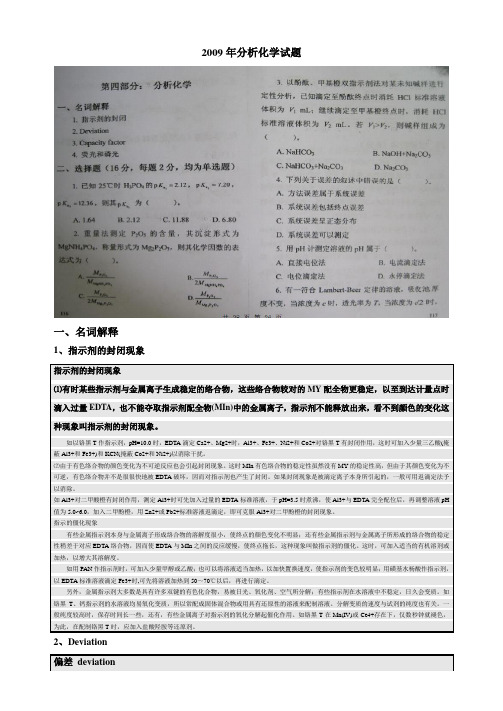 2009 年分析化学试题
第四部分：分析化学
一、名词解释
1. 指示剂的封闭
2. Deviation
3. Capacity factor
4. 荧光和磷光
二、选择题（16 分，每题 2 分，均为单选题）
1. 已知 25℃时 H₃PO₄ 的 pKa₁=2.12，pKa₂=7.20，
pKa₃=12.36，则其 pKb₁ 为（ ）。
A. 1.64 B. 2.12 C. 11.88 D. 6.80
2. 重量法测定 P₂O₅ 的含量，其沉淀形式为
MgNH₄PO₄，称量形式为 Mg₂P₂O₇，则其化学因数的表
达式为（ ）。
116
3. 以酚酞、甲基橙双指示剂法对某未知碱样进行
定性分析。已知滴定至酚酞终点时消耗 HCl 标准溶液
体积为 V₁ mL；继续滴定至甲基橙终点时，消耗 HCl
标准溶液体积为 V₂ mL，若 V₁>V₂，则碱样组成为
（ ）。
A. NaHCO₃ B. NaOH+Na₂CO₃
C. NaHCO₃+Na₂CO₃ D. Na₂CO₃
4. 下列关于误差的叙述中错误的是（ ）。
A. 方法误差属于系统误差
B. 系统误差包括终点误差
C. 系统误差呈正态分布
D. 系统误差可以测定
5. 用 pH 计测定溶液的 pH 属于（ ）。
A. 直接电位法 B. 电流滴定法
C. 电位滴定法 D. 永停滴定法
6. 有一符合 Lambert-Beer 定律的溶液，吸收池厚
度不变，当浓度为 c 时，透光率为 T，当浓度为 c/2 时，
117
一、名词解释
1、指示剂的封闭现象
指示剂的封闭现象
⑴有时某些指示剂与金属离子生成稳定的络合物，这些络合物较对的 MY 配全物更稳定，以至到达计量点时
滴入过量 EDTA，也不能夺取指示剂配合物(MIn)中的金属离子，指示剂不能释放出来，看不到颜色的变化这
种现象叫指示剂的封闭现象。
如以铬黑 T 作指示剂，pH=10.0 时，EDTA 滴定 Ca2+、Mg2+时，Al3+、Fe3+、Ni2+和 Co2+对铬黑 T 有封闭作用，这时可加入少量三乙醇(掩
蔽 Al3+和 Fe3+)和 KCN(掩蔽 Co2+和 Ni2+)以消除干扰。
⑵由于有色络合物的颜色变化为不可逆反应也会引起封闭现象。这时 MIn 有色络合物的稳定性虽然没有 MY 的稳定性高，但由于其颜色变化为不
可逆，有色络合物并不是很很快地被 EDTA 破坏，因而对指示剂也产生了封闭。如果封闭现象是被滴定离子本身所引起的，一般可用返滴定法予
以消除。
如 Al3+对二甲酚橙有封闭作用，测定 Al3+时可先加入过量的 EDTA 标准溶液，于 pH=3.5 时煮沸，使 Al3+与 EDTA 完全配位后，再调整溶液 pH
值为 5.0~6.0，加入二甲酚橙，用 Zn2+或 Pb2+标准溶液返滴定，即可克服 Al3+对二甲酚橙的封闭现象。
指示的僵化现象
有些金属指示剂本身与金属离子形成络合物的溶解度很小，使终点的颜色变化不明显；还有些金属指示剂与金属离子所形成的络合物的稳定
性稍差于对应 EDTA 络合物，因而使 EDTA 与 MIn 之间的反应缓慢，使终点拖长，这种现叫做指示剂的僵化。这时，可加入适当的有机溶剂或
加热，以增大其溶解度。
如用 PAN 作指示剂时，可加入少量甲醇或乙醇，也可以将溶液适当加热，以加快置换速度，使指示剂的变色较明显；用磺基水杨酸作指示剂，
以 EDTA 标准溶液滴定 Fe3+时,可先将溶液加热到 50～70℃以后，再进行滴定。
另外，金属指示剂大多数是具有许多双键的有色化合物，易被日光、氧化剂、空气所分解；有些指示剂在水溶液中不稳定，日久会变质。如
铬黑 T、钙指示剂的水溶液均易氧化变质，所以常配成固体混合物或用具有还原性的溶液来配制溶液。分解变质的速度与试剂的纯度也有关，一
般纯度较高时，保存时间长一些。还有，有些金属离子对于指示剂的氧化分解起催化作用。如铬黑 T 在 Mn(IV)或 Ce4+存在下，仅数秒钟就褪色，
为此，在配制铬黑 T 时，应加入盐酸羟胺等还原剂。
2、Deviation
偏差 deviation